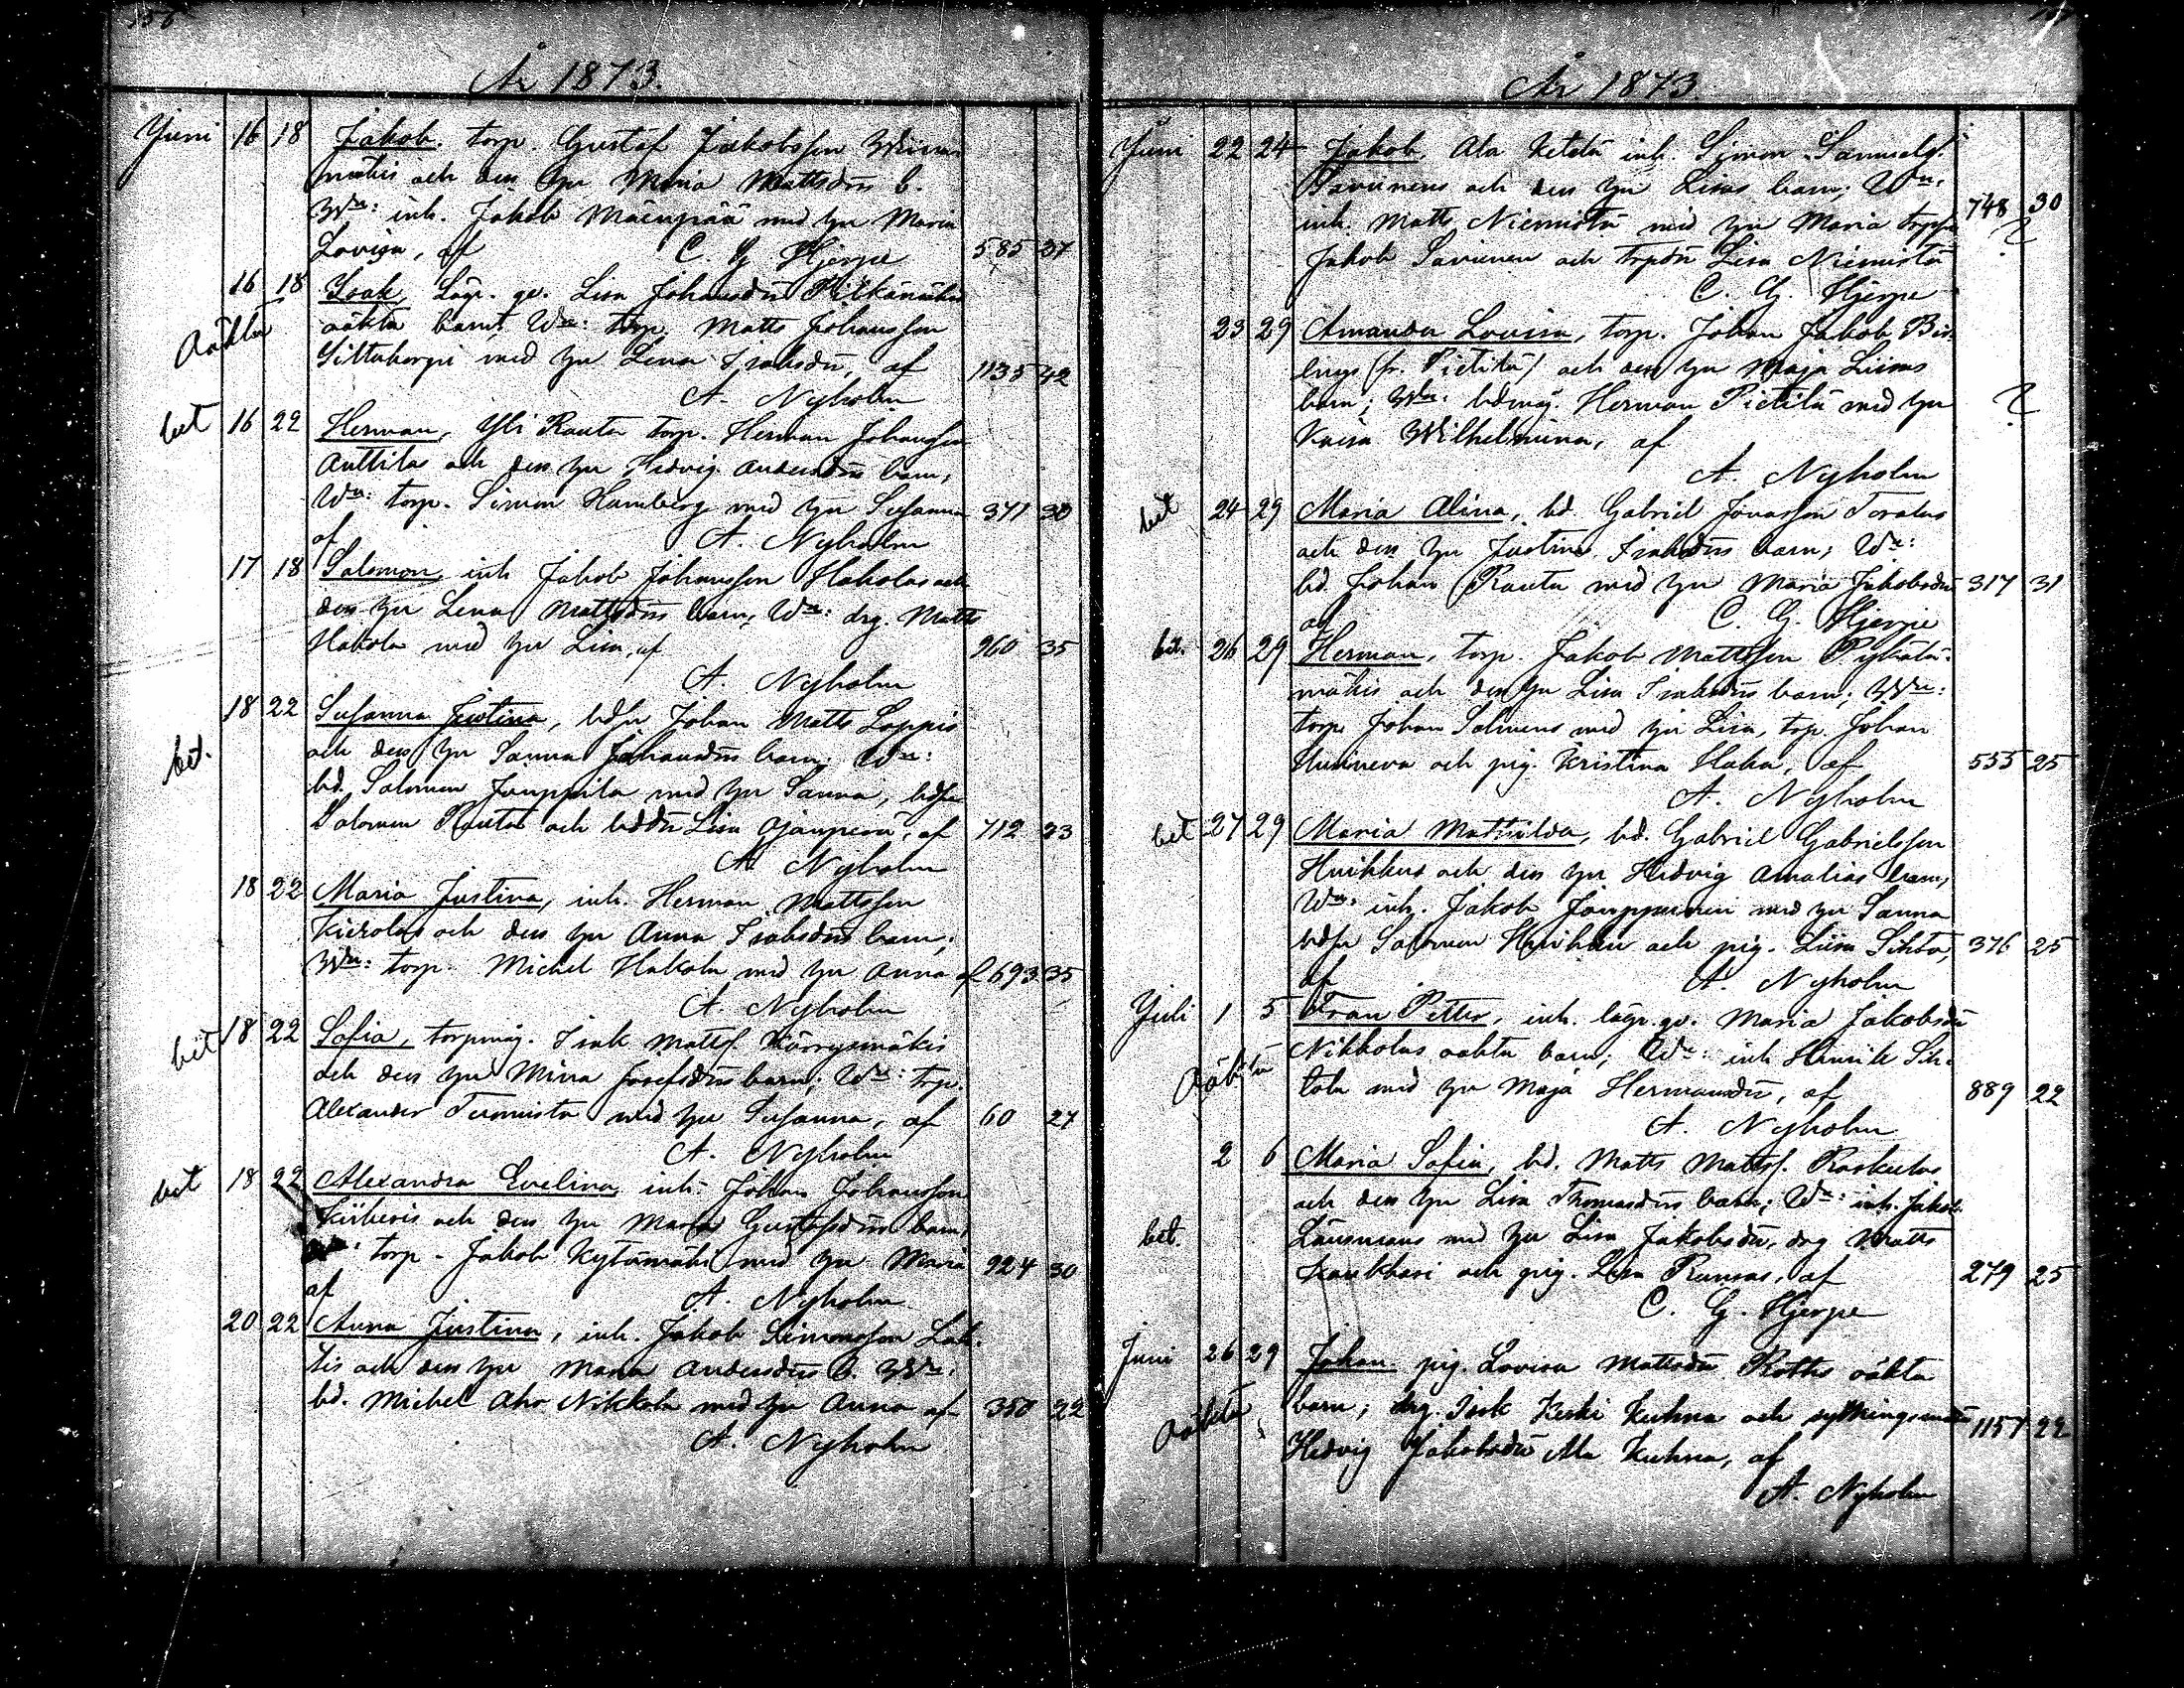 År 1873.
Juni 16 18 Jakob, torp. Gustaf Jakobsson
mäkis och dess hu Maria Mattsdrs b.
Wn: inh. Jakob Mäenpää med hu Maria
Lovisa, af C. G. Hjerpe 585 37
16 18 Isak, Lägr. qv. Lisa Johansdr
oäkta barn, Wn: torp. Matts Johansson
Oäkta
med hu Lena Isaksdr, af 1135 42
A. Nyholm
bet 16 22 Herman, Yli Rauta torp. Herman Johansson
Anttilas och dess hu Hedvig Andersdrs barn,
Wn: torp. Simon Hamberg med hu Susanna 371 30
af A. Nyholm
17 18 Salomon, inh Jakob Johansson Hakolas och
dess hu Lena Mattsdrs barn, Wn: drg. Matts
Hakola med hu Lisa, af 960 35
A. Nyholm
18 22 Susanna Justina, bdsn Johan Matts Loppis
och dess hu Sanna Johansdrs barn, Wn:
bet.
bd. Salomon Jouppila med hu Sanna, bdsn
Salomon Rauta och bddr Lisa Ojanperä, af 712 23
A. Nyholm
18 22 Maria Justina, inh. Herman Mattsson
Kierolas och dess hu Anna Isaksdrs barn,
Wn: torp. Michel Hakola med hu Anna af 693 35
A. Nyholm
bet 18 22 Sofia, torpmåg. Isak Mattss.
och dess hu Mina Josefsdrs barn; Wn: torp.
Alexander med hu Susanna, af 60 27
A. Nyholm
bet 18 22 Alexandra Evelina, inh. Johan Johansson
och dess hu Maria Gustafsdrs barn,
torp. Jakob Kytömäki med hu Maria 924 30
af A. Nyholm
20 22 Anna Justina, inh. Jakob Simonsson Lah-
tis och dess hu Maria Andersdrs b. Wn:
bd. Michel Aho Nikkola med hu Anna af 350 22
A. Nyholm
År 1873.
Juni 22 24 Jakob, Ala Ketola inh. Simon Samuelss.
Saviniens och dess hu Lisas barn; Wn.
inh. Matts Niemistö med hu Maria 748 30
Jakob Savinen och Lisa Niemistö
C. G. Hjerpe
23 29 Amanda Lovisa, torp. Johan Jakob
(fr. Pietilä) och dess hu Maja Liisas
barn; Wn: bdmåg. Herman Pietilä med hu
Kaisa Wilhelmina, af
A. Nyholm
bet 24 29 Maria Alina, bd. Gabriel Jonasson
och dess hu Justina Isaksdrs barn; Wn:
bd. Johan Rauta med hu Maria Jakobsdr 317 31
af C. G. Hjerpe
bet. 26 29 Herman, torp. Jakob Mattsson
mäkis och dess hu Lisa Isaksdrs barn; Wn:
torp. Johan med hu Lisa, torp. Johan
och pig. Kristina Haka, af 555 25
A. Nyholm
bet 27 29 Maria Mathilda, bd. Gabriel Gabrielsson
Huikkus och dess hu Hedvig Amalias barn,
Wn: inh. Jakob med hu Sanna
bdsn Salomon och pig. Liisa Sihto, 376 25
af A. Nyholm
Juli 1 5 Frans Petter, inh. lägr. qv. Maria Jakobsdr
Nikkolas oäkta barn; Wn: inh Henrik Sih-
Oäkta
tola med hu Maja Hermansdr, af 889 22
A. Nyholm
2 6 Maria Sofia, bd. Matts Mattss.
och dess hu Lisa Thomasdrs barn; Wn: inh. Jakob
bet.
med hu Lisa Jakobsdr, drg Matts
och pig. Lisa af 279 25
C. G. Hjerpe
Juni 26 29 Johan, pig. Lovisa Mattsdr oäkta
barn; drg. Isak Keski Kuhna och 1157 22
Oäkta
Hedvig Jakobsdr Ala Kuhna, af
A. Nyholm